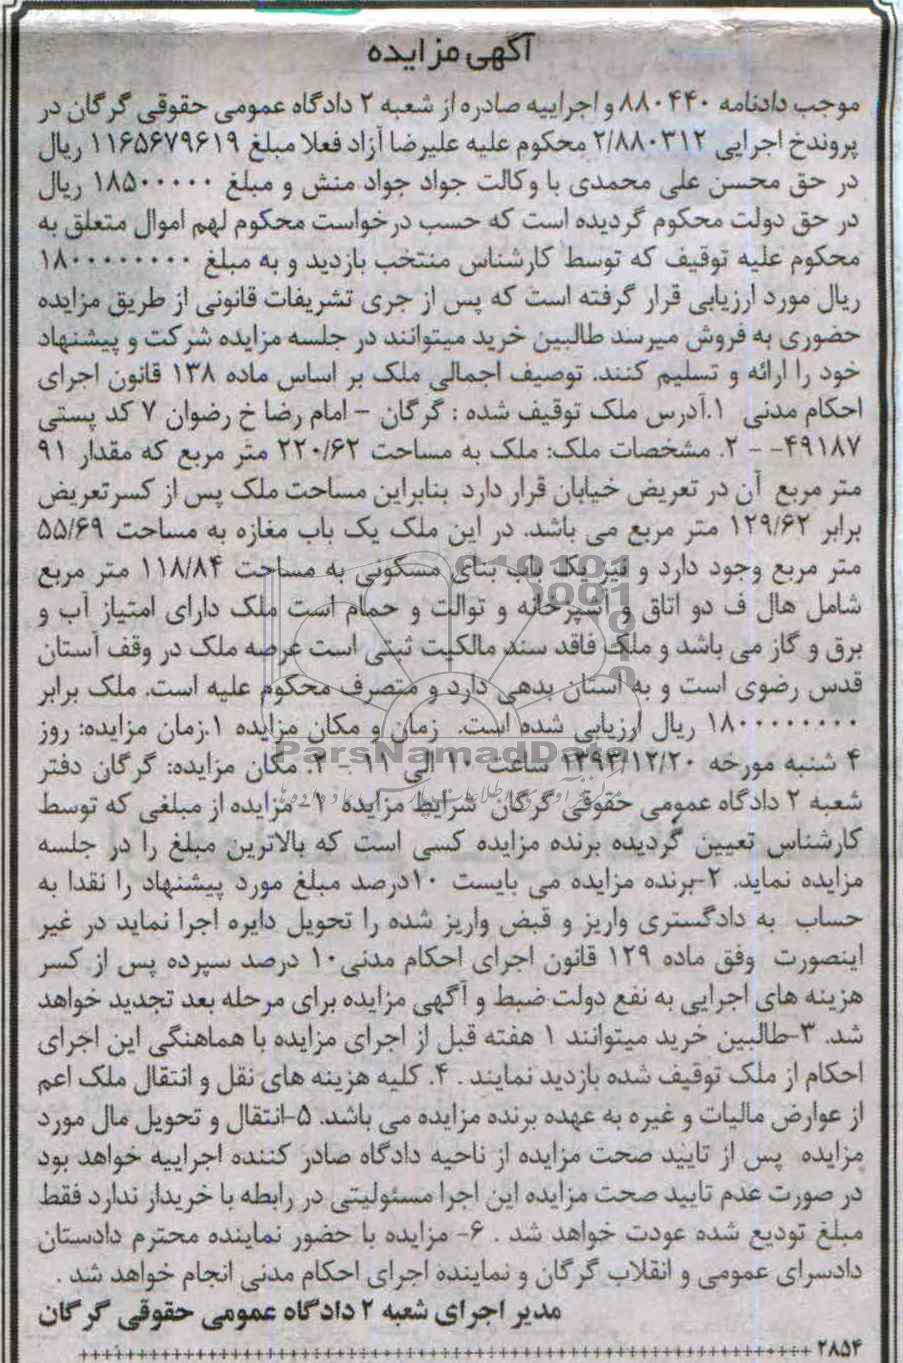 آگهی مزایده
موجب دادنامه ۸۸۰۴۴۰ و اجراییه صادره از شعبه ۲ دادگاه عمومی حقوقی گرگان در
پروندخ اجرایی ۲/۸۸۰۳۱۲ محکوم علیه علیرضا آزاد فعلا مبلغ ۱۱۶۵۶۷۹۶۱۹ ریال
در حق محسن علی محمدی با وکالت جواد جواد منش و مبلغ ۱۸۵۰۰۰۰۰ ریال
در حق دولت محکوم گردیده است که حسب درخواست محکوم لهم اموال متعلق به
محکوم علیه توقیف که توسط کارشناس منتخب بازدید و به مبلغ ۱۸۰۰۰۰۰۰۰۰
ریال مورد ارزیابی قرار گرفته است که پس از جری تشریفات قانونی از طریق مزایده
حضوری به فروش میرسد طالبین خرید میتوانند در جلسه مزایده شرکت و پیشنهاد
خود را ارائه و تسلیم کنند. توصیف اجمالی ملک بر اساس ماده ۱۳۸ قانون اجرای
احکام مدنی ۱.آدرس ملک توقیف شده : گرگان – امام رضا خ رضوان ۷ کد پستی
۴۹۱۸۷- - ۲. مشخصات ملک: ملک به مساحت ۲۲۰/۶۲ متر مربع که مقدار ۹۱
متر مربع آن در تعریض خیابان قرار دارد بنابراین مساحت ملک پس از کسرتعریض
برابر ۱۲۹/۶۲ متر مربع می باشد. در این ملک یک باب مغازه به مساحت ۵۵/۶۹
متر مربع وجود دارد و نیز یک باب بنای مسکونی به مساحت ۱۱۸/۸۴ متر مربع
شامل هال ف دو اتاق و آشپزخانه و توالت و حمام است ملک دارای امتیاز آب و
برق و گاز می باشد و ملک فاقد سند مالکیت ثبتی است عرصه ملک در وقف آستان
قدس رضوی است و به آستان بدهی دارد و متصرف محکوم علیه است. ملک برابر
۱۸۰۰۰۰۰۰۰۰ ریال ارزیابی شده است. زمان و مکان مزایده ۱.زمان مزایده: روز
ParsNamadData
۴ شنبه مورخه ۱۳۹۳/۱۲/۲۰ ساعت ۱۰ الی ۱۱ – ۲. مکان مزایده: گرگان دفتر
شعبه ۲ دادگاه عمومی حقوقی گرگان شرایط مزایده ۱- مزایده از مبلغی که توسط
کارشناس تعیین گردیده برنده مزایده کسی است که بالاترین مبلغ را در جلسه
مزایده نماید. ۲-برنده مزایده می بایست ۱۰درصد مبلغ مورد پیشنهاد را نقدا به
حساب به دادگستری واریز و قبض واریز شده را تحویل دایره اجرا نماید در غیر
اینصورت وفق ماده ۱۲۹ قانون اجرای احکام مدنی۱۰ درصد سپرده پس از کسر
هزینه های اجرایی به نفع دولت ضبط و آگهی مزایده برای مرحله بعد تجدید خواهد
شد. ۳-طالبین خرید میتوانند ۱ هفته قبل از اجرای مزایده با هماهنگی این اجرای
احکام از ملک توقیف شده بازدید نمایند . ۴. کلیه هزینه های نقل و انتقال ملک اعم
از عوارض مالیات و غیره به عهده برنده مزایده می باشد. ۵-انتقال و تحویل مال مورد
مزایده پس از تایید صحت مزایده از ناحیه دادگاه صادر کننده اجراییه خواهد بود
در صورت عدم تایید صحت مزایده این اجرا مسئولیتی در رابطه با خریدار ندارد فقط
مبلغ تودیع شده عودت خواهد شد . ۶- مزایده با حضور نماینده محترم دادستان
دادسرای عمومی و انقلاب گرگان و نماینده اجرای احکام مدنی انجام خواهد شد .
مدیر اجرای شعبه ۲ دادگاه عمومی حقوقی گرگان
۲۸۵۴